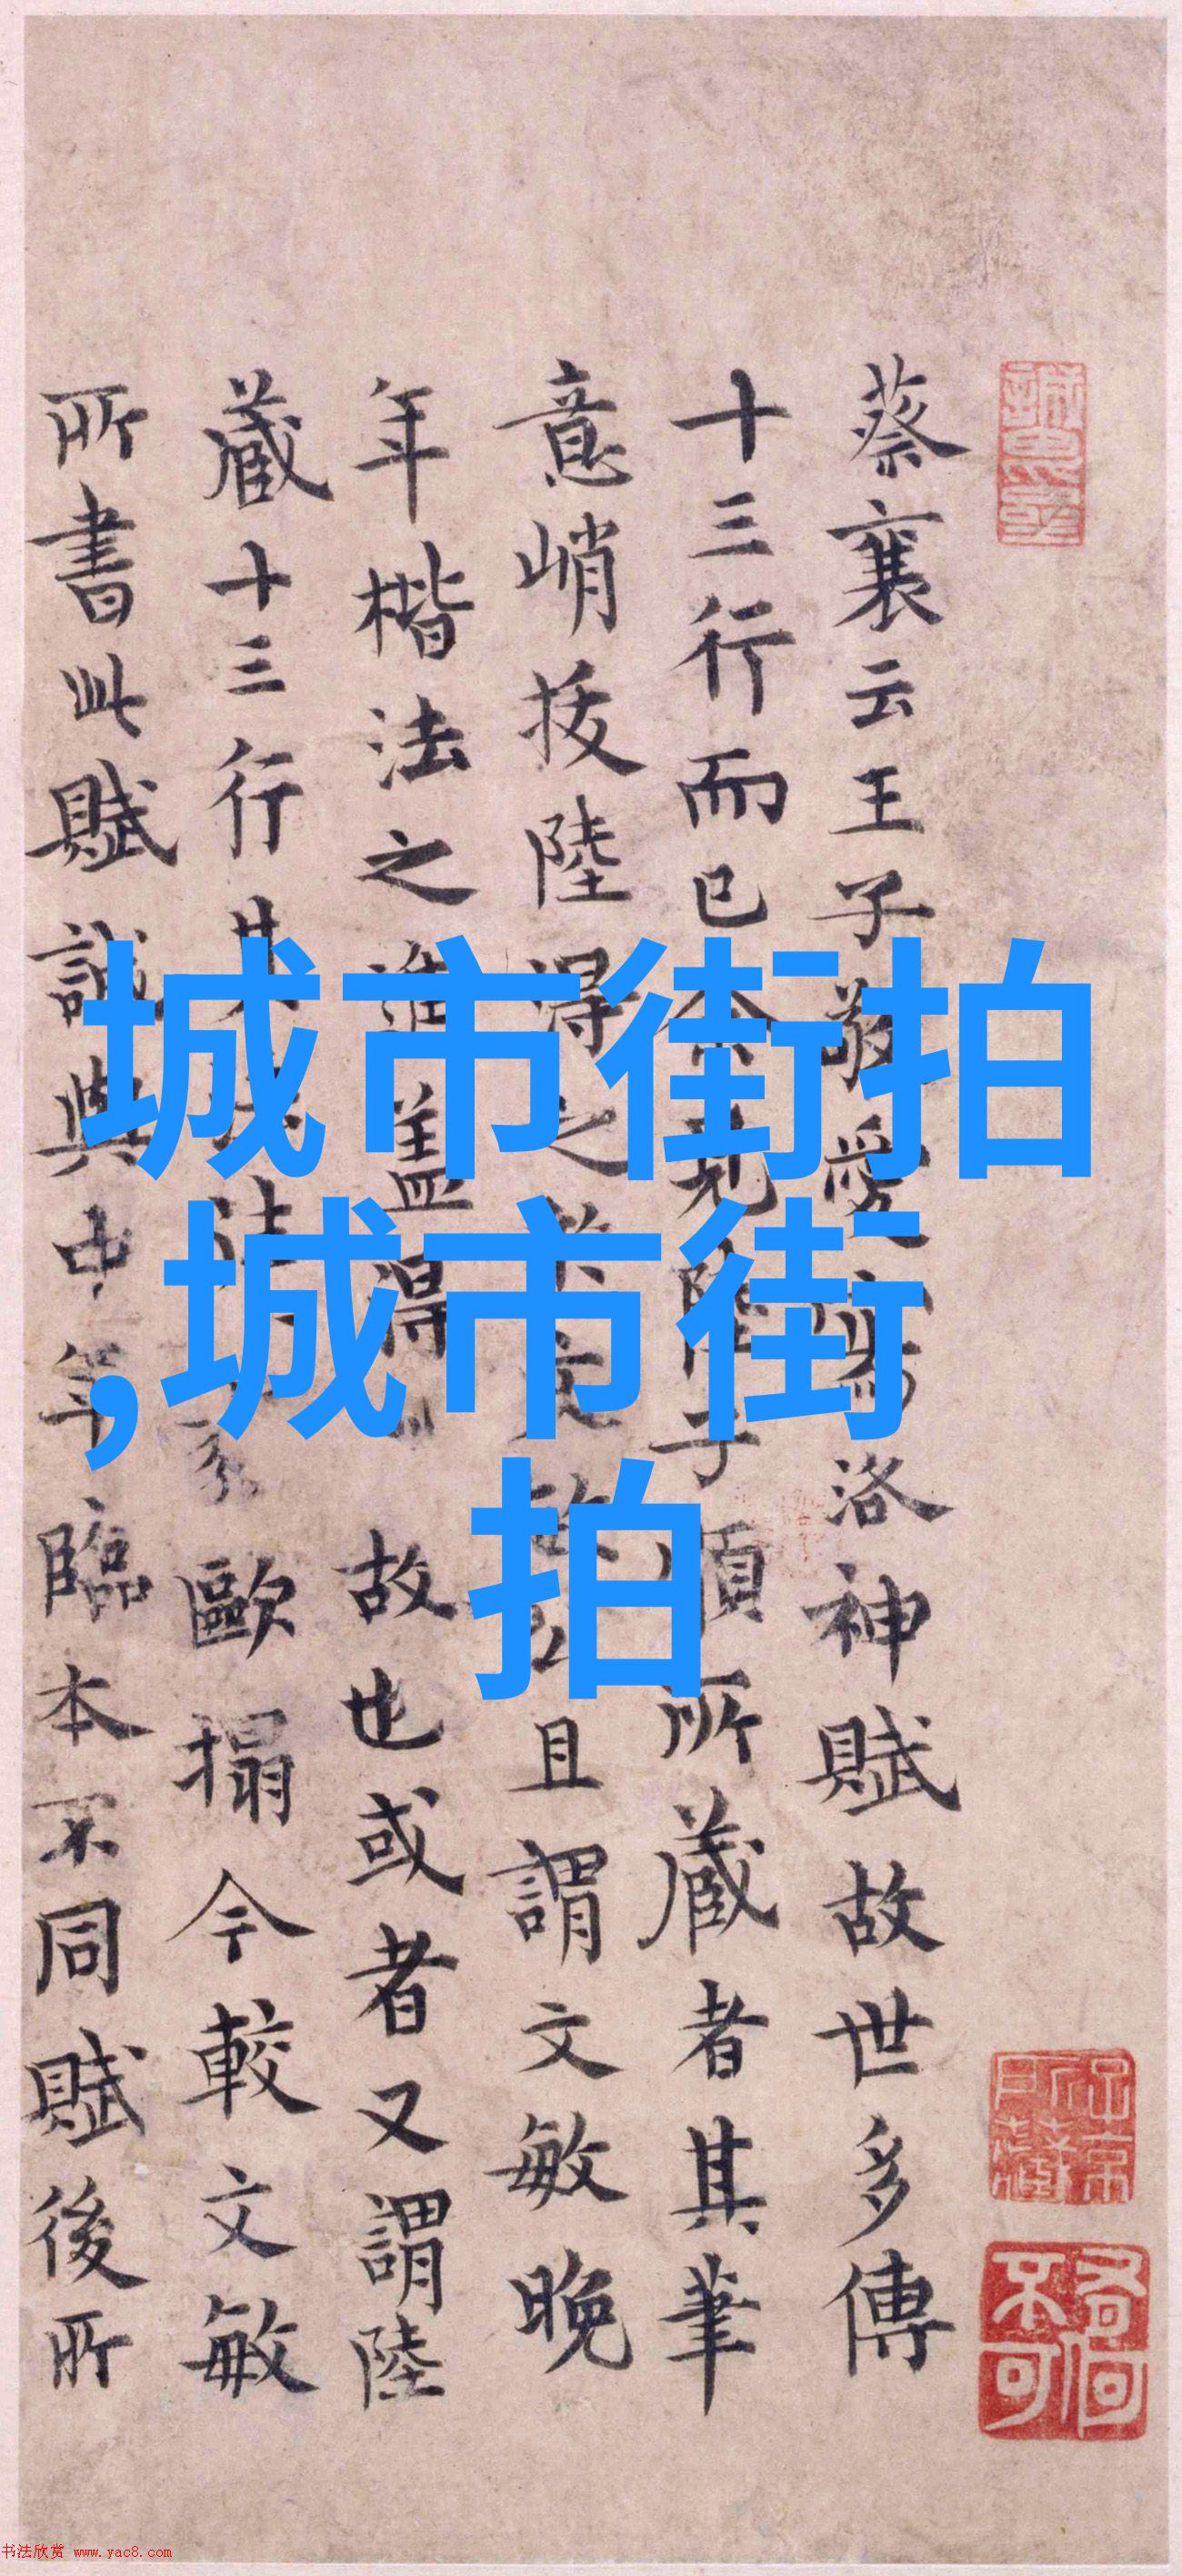 蔡襄云王子敬愛寫洛神賦故世多傳
十三行而已余見陸子順所蔵者其筆
意峭拔陸得之且謂文敏晚
年楷法之進盖得故也或者又謂陸
蔵十三行歐搨今較文敏
所書此賦誠與中年臨本不同賦後所
城市街拍
,城市街
拍
书法欣赏 www.yac8.com